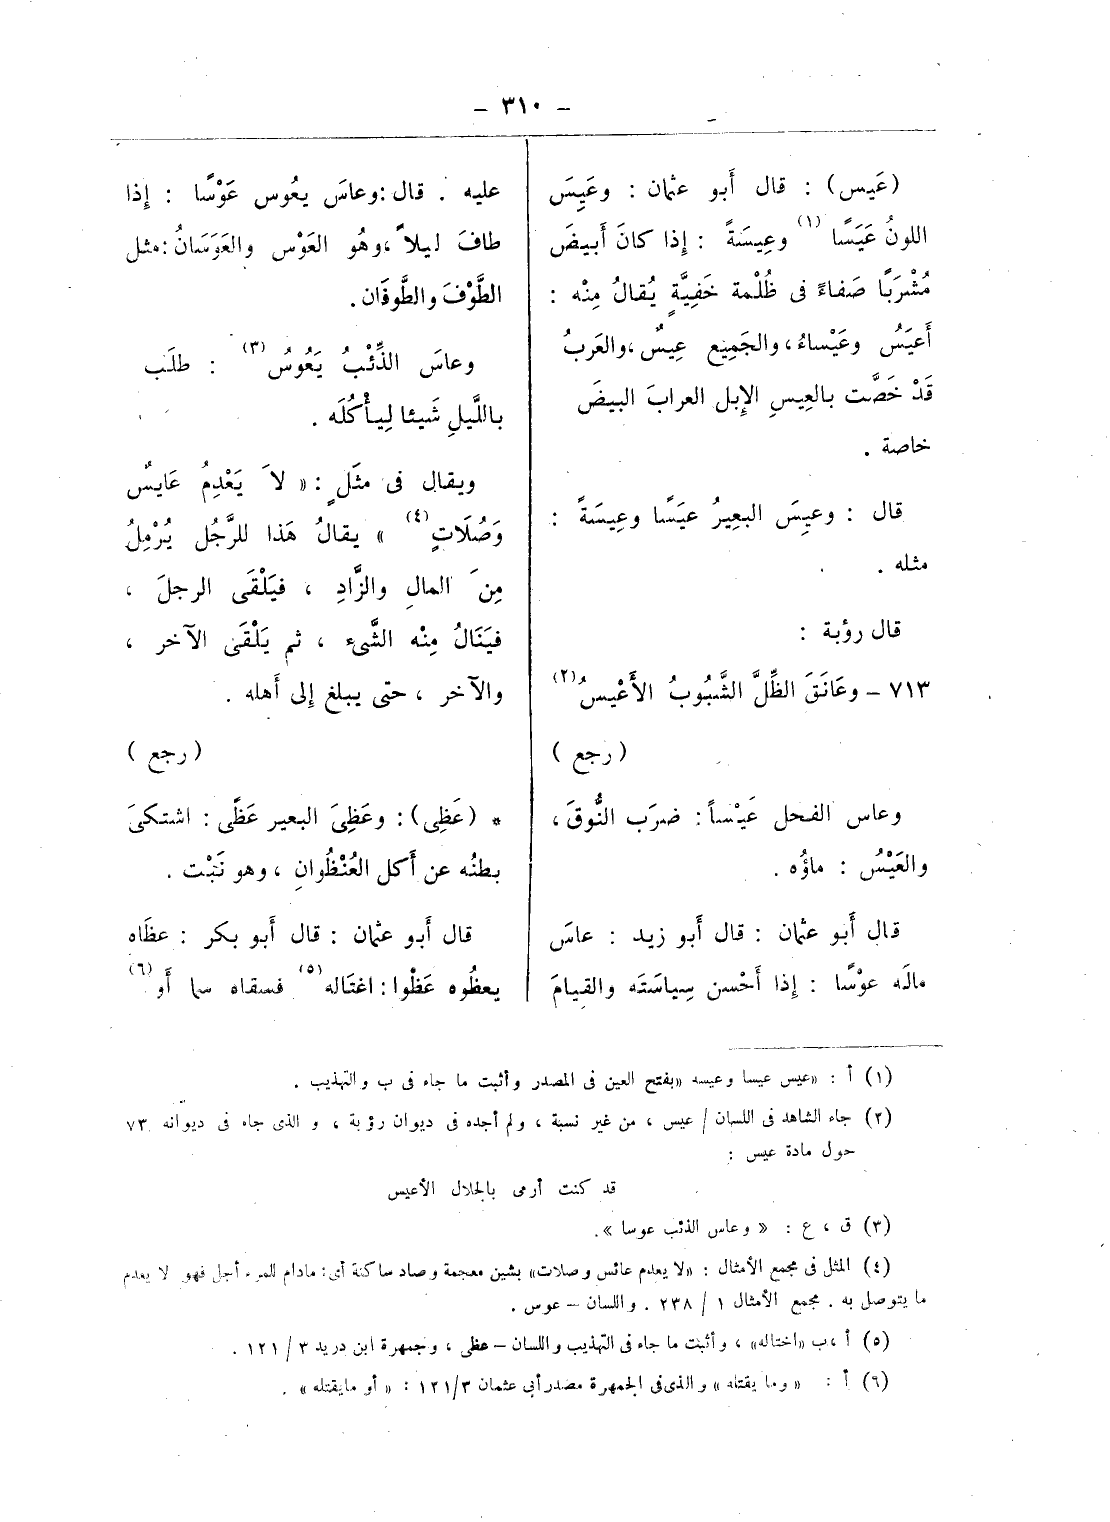 – ٣١٠ –
(عَيس) : قال أَبو عثمان : وعَيِسَ
اللونُ عَيَسًا (١) وعِيسَةً : إِذا كانَ أَبيضَ
مُشْرَبًا صَفاءً فى ظُلْمة خَفِيَّةٍ يُقالُ مِنْه :
أَعيَسُ وعَيْساءُ ، والجَمِيع عِيسٌ ، والعَربُ
قَدْ خَصَّت بالعِيسِ الإِبل العرابَ البيضَ
خاصة .
قال : وعيِسَ البعِيرُ عيَسًا وعِيسَةً :
مثله .
قال رؤبة :
٧١٣ – وعَانَقَ الظِّلَّ الشَّبُوبُ الأَعْيسُ (٢)
( رجع )
وعاس الفحل عَيْساً : ضرَب النُّوقَ ،
والعَيْسُ : ماؤُه .
قال أَبو عثمان : قال أَبو زيد : عاسَ
مالَه عوْسًا : إِذا أَحْسن سِياسَتَه والقيامَ
عليه . قال : وعاسَ يعُوس عَوْسًا : إِذا
طافَ ليلاً ، وهُو العَوْس والعَوَسَانُ : مثل
الطَّوْفَ والطَّوفَان .
وعاسَ الذِّئْبُ يَعُوسُ (٣) : طلَب
باللَّيلِ شَيئا لِيأْكُلَه .
ويقال فى مثَلٍ : « لاَ يَعْدِمُ عَايسٌ
وَصُلَاتٍ (٤) » يقالُ هَذا للرَّجُل يُرْمِلُ
مِنَ المالِ والزَّادِ ، فيَلْقَى الرجلَ ،
فيَنَالُ مِنْه الشَّىء ، ثم يَلْقَى الآخر ،
والآخر ، حتى يبلغ إِلى أَهله .
( رجع )
* (عَظِى) : وعَظِىَ البعير عَظًى : اشتكىَ
بطنُه عن أَكل العُنْظُوانِ ، وهو نَبْت .
قال أَبو عثمان : قال أَبو بكر : عظَاه
يعظُوه عَظْوا : اغتَاله (٥) فسقاه سما أَو (٦)
(١) أ : «عيس عيسا وعيسه» بفتح العين فى المصدر وأثبت ما جاء فى ب والتهذيب .
(٢) جاء الشاهد فى اللسان / عيس ، من غير نسبة ، ولم أجده فى ديوان رؤبة ، و الذى جاء فى ديوانه ٧٣
حول مادة عيس :
قد كنت أرمى بالجلال الأعيس
(٣) ق ، ع : « وعاس الذئب عوسا » .
(٤) المثل فى مجمع الأمثال : «لا يعدم عائس وصلات» بشين معجمة وصاد ساكنة أى : مادام للمرء أجل فهو لا يعدم
ما يتوصل به . مجمع الأمثال ١ / ٢٣٨ . واللسان – عوس .
(٥) أ ، ب «اختاله» ، وأثبت ما جاء فى التهذيب واللسان – عظى ، وجمهرة ابن دريد ٣ / ١٢١ .
(٦) أ : « وما يقتله » والذى فى الجمهرة مصدر أبى عثمان ٣/١٢١ : « أو مايقتله » .